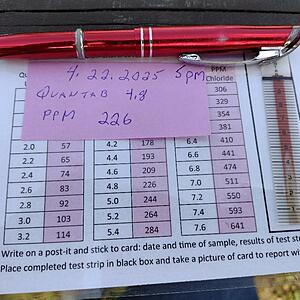 PPM
Qu Chloride
4.22.2025 5pm
306
QUANTAB 4.8
329
354
PPM 226
381
2.0 57 4.2 178 6.4 410
2.2 65 4.4 193 6.6 441
2.4 74 4.6 209 6.8 474
2.6 83 4.8 226 7.0 511
2.8 92 5.0 244 7.2 550
3.0 103 5.2 264 7.4 593
3.2 114 5.4 284 7.6 641
Write on a post-it and stick to card: date and time of sample, results of test str
Place completed test strip in black box and take a picture of card to report wi